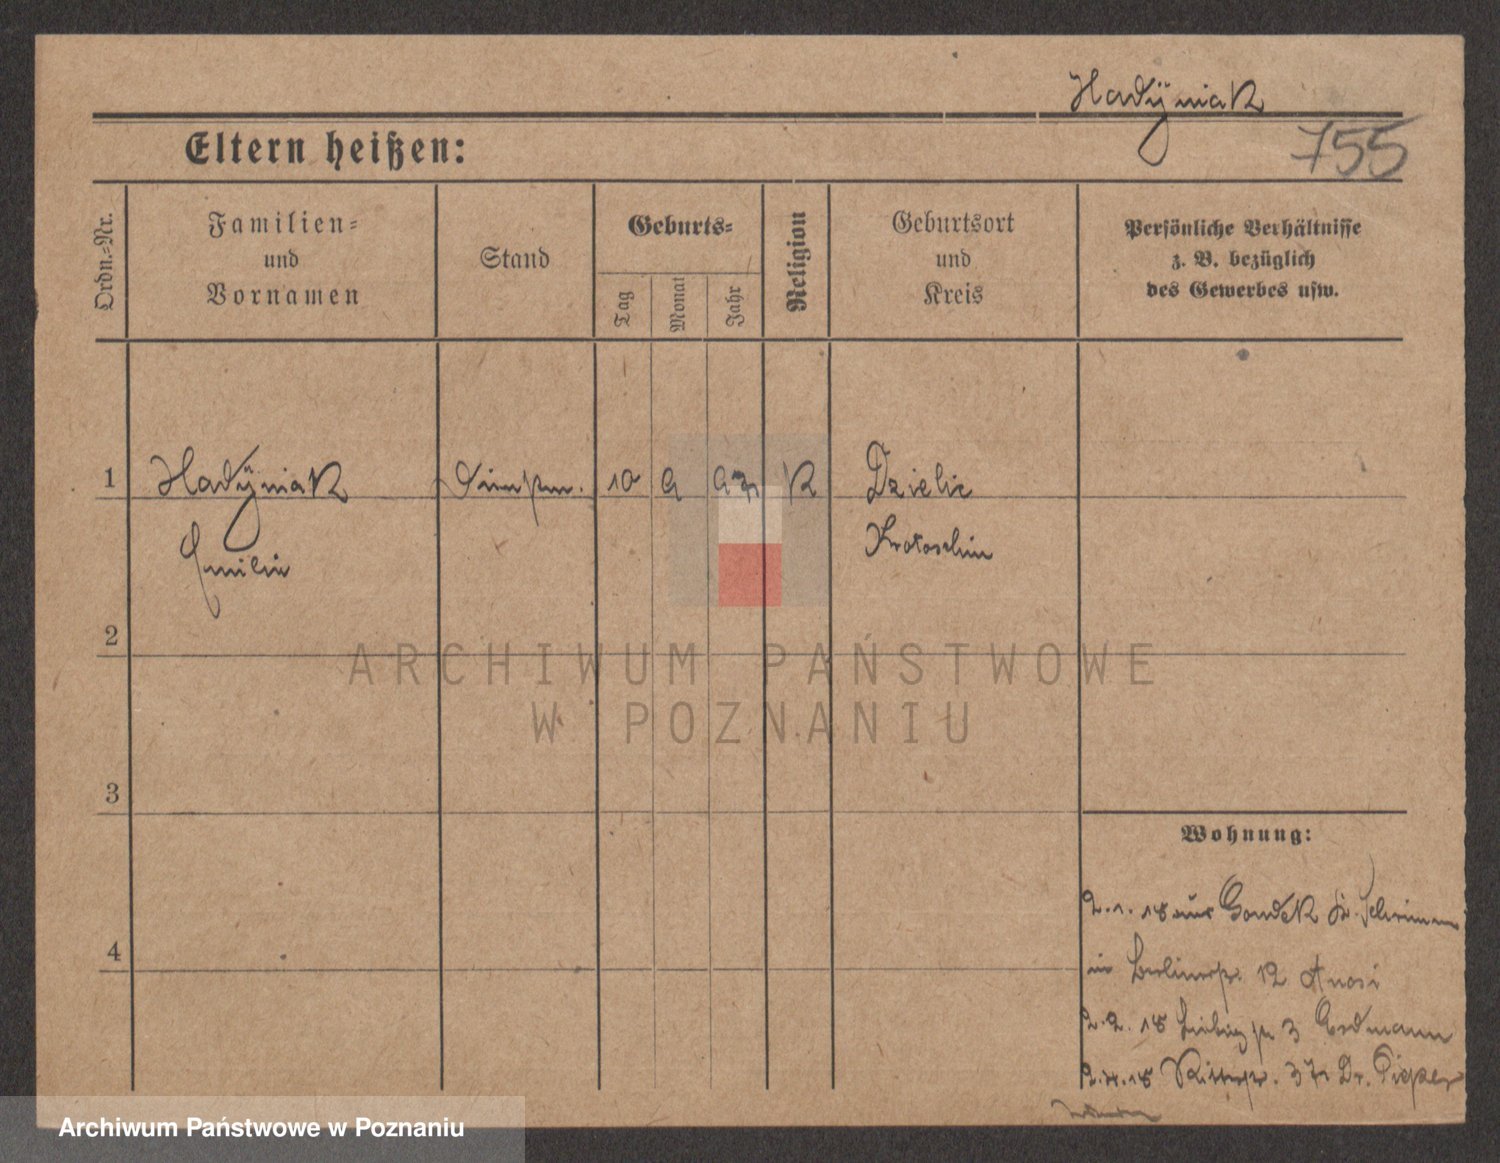 Hadÿniak
755
Eltern heißen:
Ordn.-Nr.
Familien-
und
Vornamen
Stand
Geburts-
Tag
Monat
Jahr
Religion
Geburtsort
und
Kreis
Persönliche Verhältnisse
z. B. bezüglich
des Gewerbes usw.
1
Hadÿniak
10 9
K
Dzielic
Emilie
Krotoschin
2
ARCHIWUM PAŃSTWOWE
W POZNANIU
3
Wohnung:
2.1.18 aus Gondek Kr. Schrimm
4
in Berlinerstr. 12
2.2.18 3 Erdmann
18 Ritterstr. 37 Dr. Pieper
Archiwum Państwowe w Poznaniu